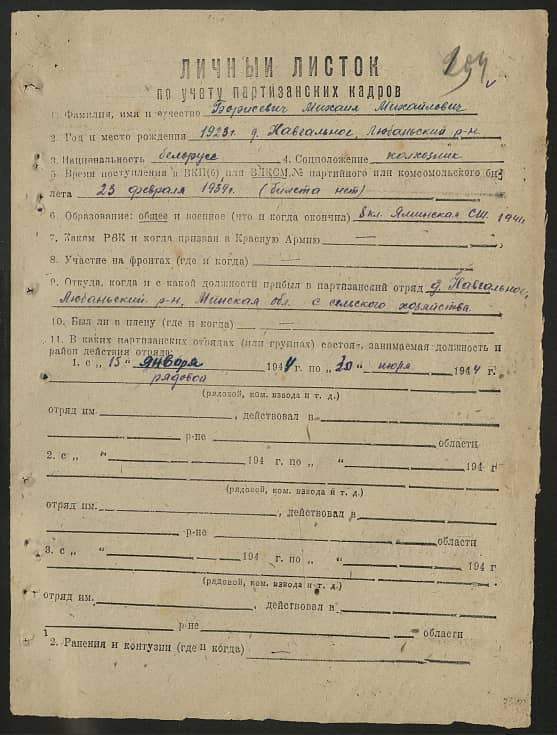 ЛИЧНЫЙ ЛИСТОК
по учету партизанских кадров
1. Фамилия, имя и отчество Борисевич Михаил Михайлович
2. Год и место рождения 1923 г. д. Навгальное, Любаньский р-н.
3. Национальность белорусс 4. Соцположение колхозник
5. Время поступления в ВКП(б) или ВЛКСМ, № партийного или комсомольского би-
лета 23 февраля 1939 г. (билета нет)
6. Образование: общее и военное (что и когда окончил) 8 кл. Яминская СШ. 1941
7. Каким РВК и когда призван в Красную Армию —
8. Участие на фронтах (где и когда) —
9. Откуда, когда и с какой должности прибыл в партизанский отряд д. Навгальное,
Любаньский р-н, Минская обл. с сельского хозяйства.
10. Был ли в плену (где и когда) —
11. В каких партизанских отрядах (или группах) состоял, занимаемая должность и
район действия отряда:
1. с „ 15 " января 1944 г. по „ 30 " июня 1944 г.
рядовой
(рядовой, ком. взвода и т. д.)
отряд им. , действовал в
р-не области
2. с „ " 194 г. по „ " 194 г
(рядовой, ком. взвода и т. д.)
отряд им. , действовал в
р-не области
3. с „ " 194 г. по „ " 194 г
(рядовой, ком. взвода и т. д.)
отряд им. , действовал в
р-не области
2. Ранения и контузии (где и когда) —